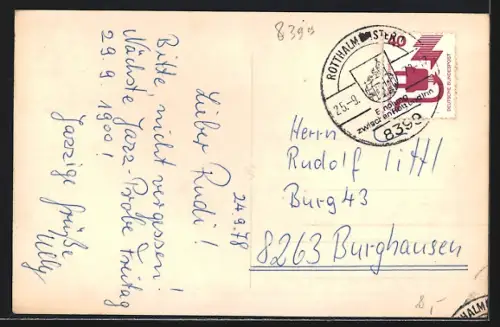 839
24.9.78
Lieber Rudi!
Bitte nicht vergessen!
Nächste Jazz-Probe Freitag
29.9. 1900!
Jazzige Grüße
Willy
ROTTHALMÜNSTER
25.-9.
zwischen Rott und Inn
8399
40
DEUTSCHE BUNDESPOST
Herrn
Rudolf Littl
Burg 43
8263 Burghausen
8,-